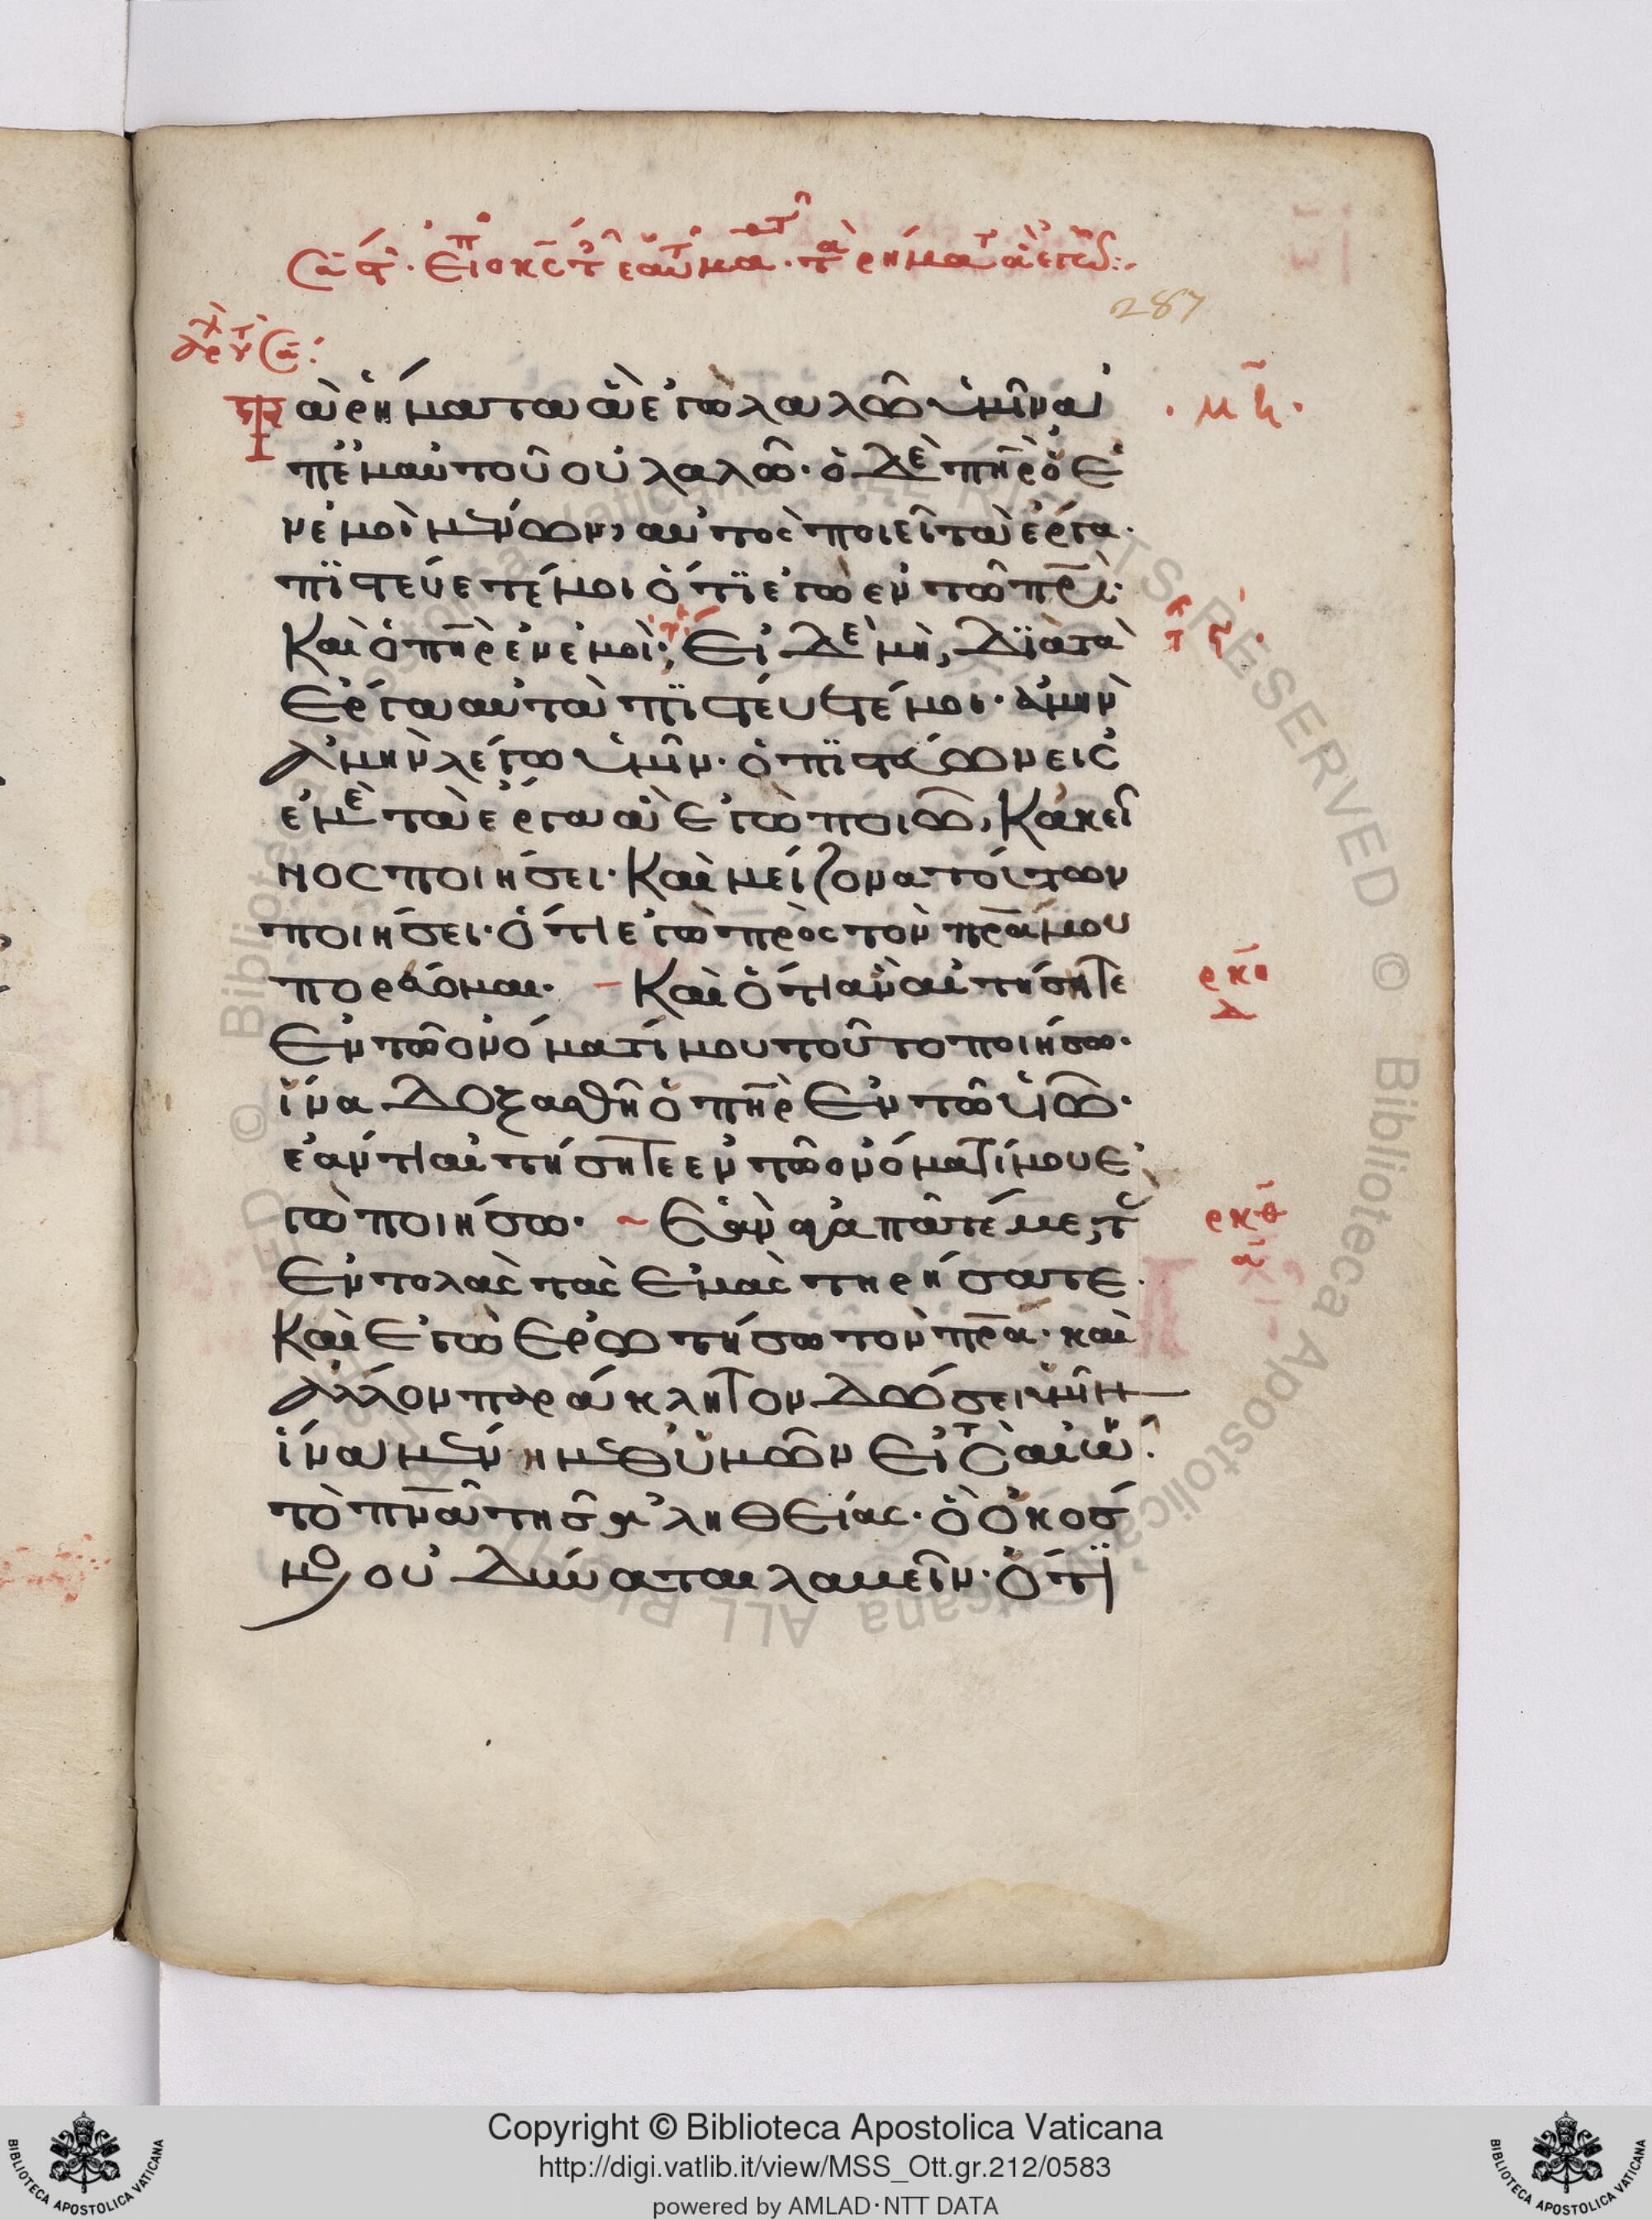 287
τὰ ῥήματα ἃ ἐγὼ λαλῶ ὑμῖν ἀ
π ἐμαυτοῦ οὐ λαλῶ· ὁ δὲ πηρ ὁ ἐ
ν ἐμοὶ μένων, αὐτος ποιεῖ τὰ ἔργα·
πϊστεύετέ μοι ὅτϊ ἐγὼ ἐν τῶ πρι·
Καὶ ὁ πηρ ἐν ἐμοί· Εἰ δὲ μὴ, δϊὰ τὰ
Ἔργα αὐτὰ πϊστεύετέ μοι· ἀμὴν
ἀμὴν λέγω ὑμῖν· ὁ πϊστεύων εἰς
ἐμὲ τὰ ἔργα ἃ ἐγὼ ποιῶ, Κακεῖ
νος ποιήσει· Καὶ μείζονα τούτων
ποιήσει· ὅτι ἐγὼ πρὸς τὸν πρα μου
πορεύομαι· Καὶ ὅτι ἂν αἰτήσητε
Ἐν τῶ ὀνόματί μου τοῦτο ποιήσω·
ἵνα δοξασθῆ ὁ πηρ Ἐν τῶ υἱῶ·
ἐάν τι αἰτήσητε ἐν τῶ ὀνόματί μου ἐ
γὼ ποιήσω· Ἐὰν ἀγαπᾶτέ με, τ
Ἐντολὰς τὰς Ἐμὰς τηρήσατε·
Καὶ Ἐγὼ Ἐρωτήσω τὸν πρα· καὶ
ἄλλον παράκλητον δώσει ὑμῖν
ἵνα μένη μεθ ὑμῶν Εἰς τ αἰῶν
τὸ πνα τῆς ἀληθείας· ὃ ὁ κόσ
μος οὐ δύναται λαβεῖν· ὅτϊ
Copyright © Biblioteca Apostolica Vaticana
http://digi.vatlib.it/view/MSS_Ott.gr.212/0583
powered by AMLAD·NTT DATA
BIBLIOTECA APOSTOLICA VATICANA
BIBLIOTECA APOSTOLICA VATICANA